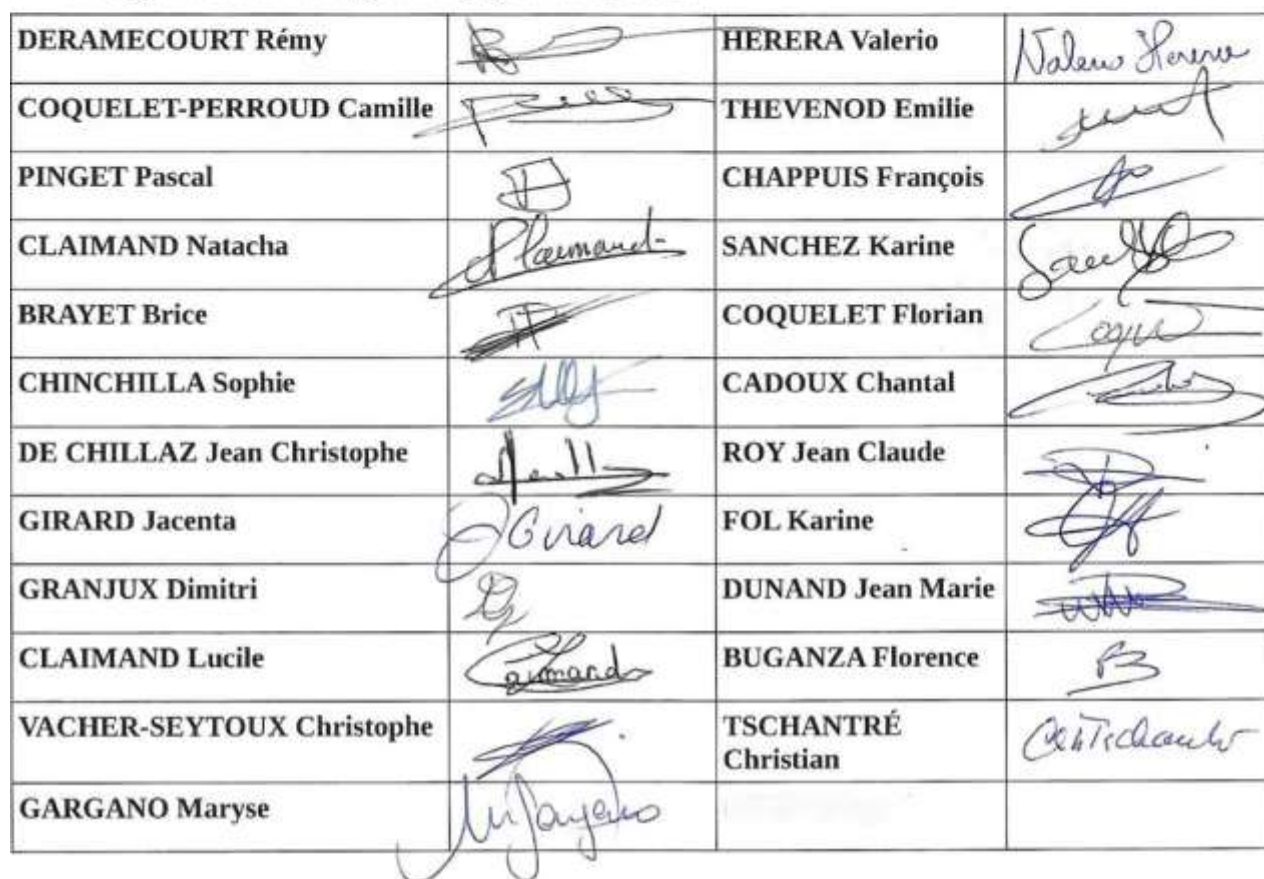 DERAMECOURT Rémy
HERERA Valerio
Valerio Herera
COQUELET-PERROUD Camille
THEVENOD Emilie
PINGET Pascal
CHAPPUIS François
CLAIMAND Natacha
Claimand
SANCHEZ Karine
BRAYET Brice
COQUELET Florian
CHINCHILLA Sophie
CADOUX Chantal
DE CHILLAZ Jean Christophe
ROY Jean Claude
GIRARD Jacenta
J Girard
FOL Karine
GRANJUX Dimitri
DUNAND Jean Marie
CLAIMAND Lucile
Claimand
BUGANZA Florence
VACHER-SEYTOUX Christophe
TSCHANTRÉ
Christian
GARGANO Maryse
M Gargano